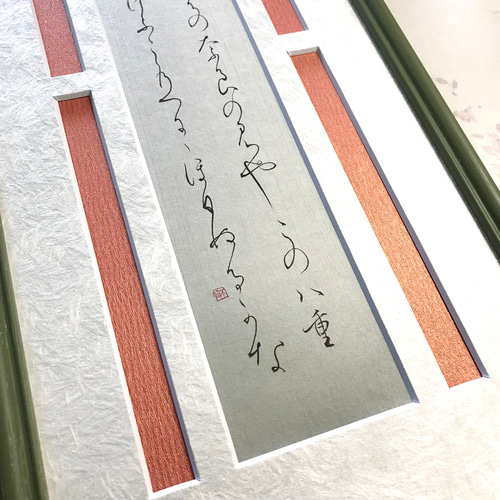 の奈良のみやこの八重
けふこゝのへにゝほひぬるかな